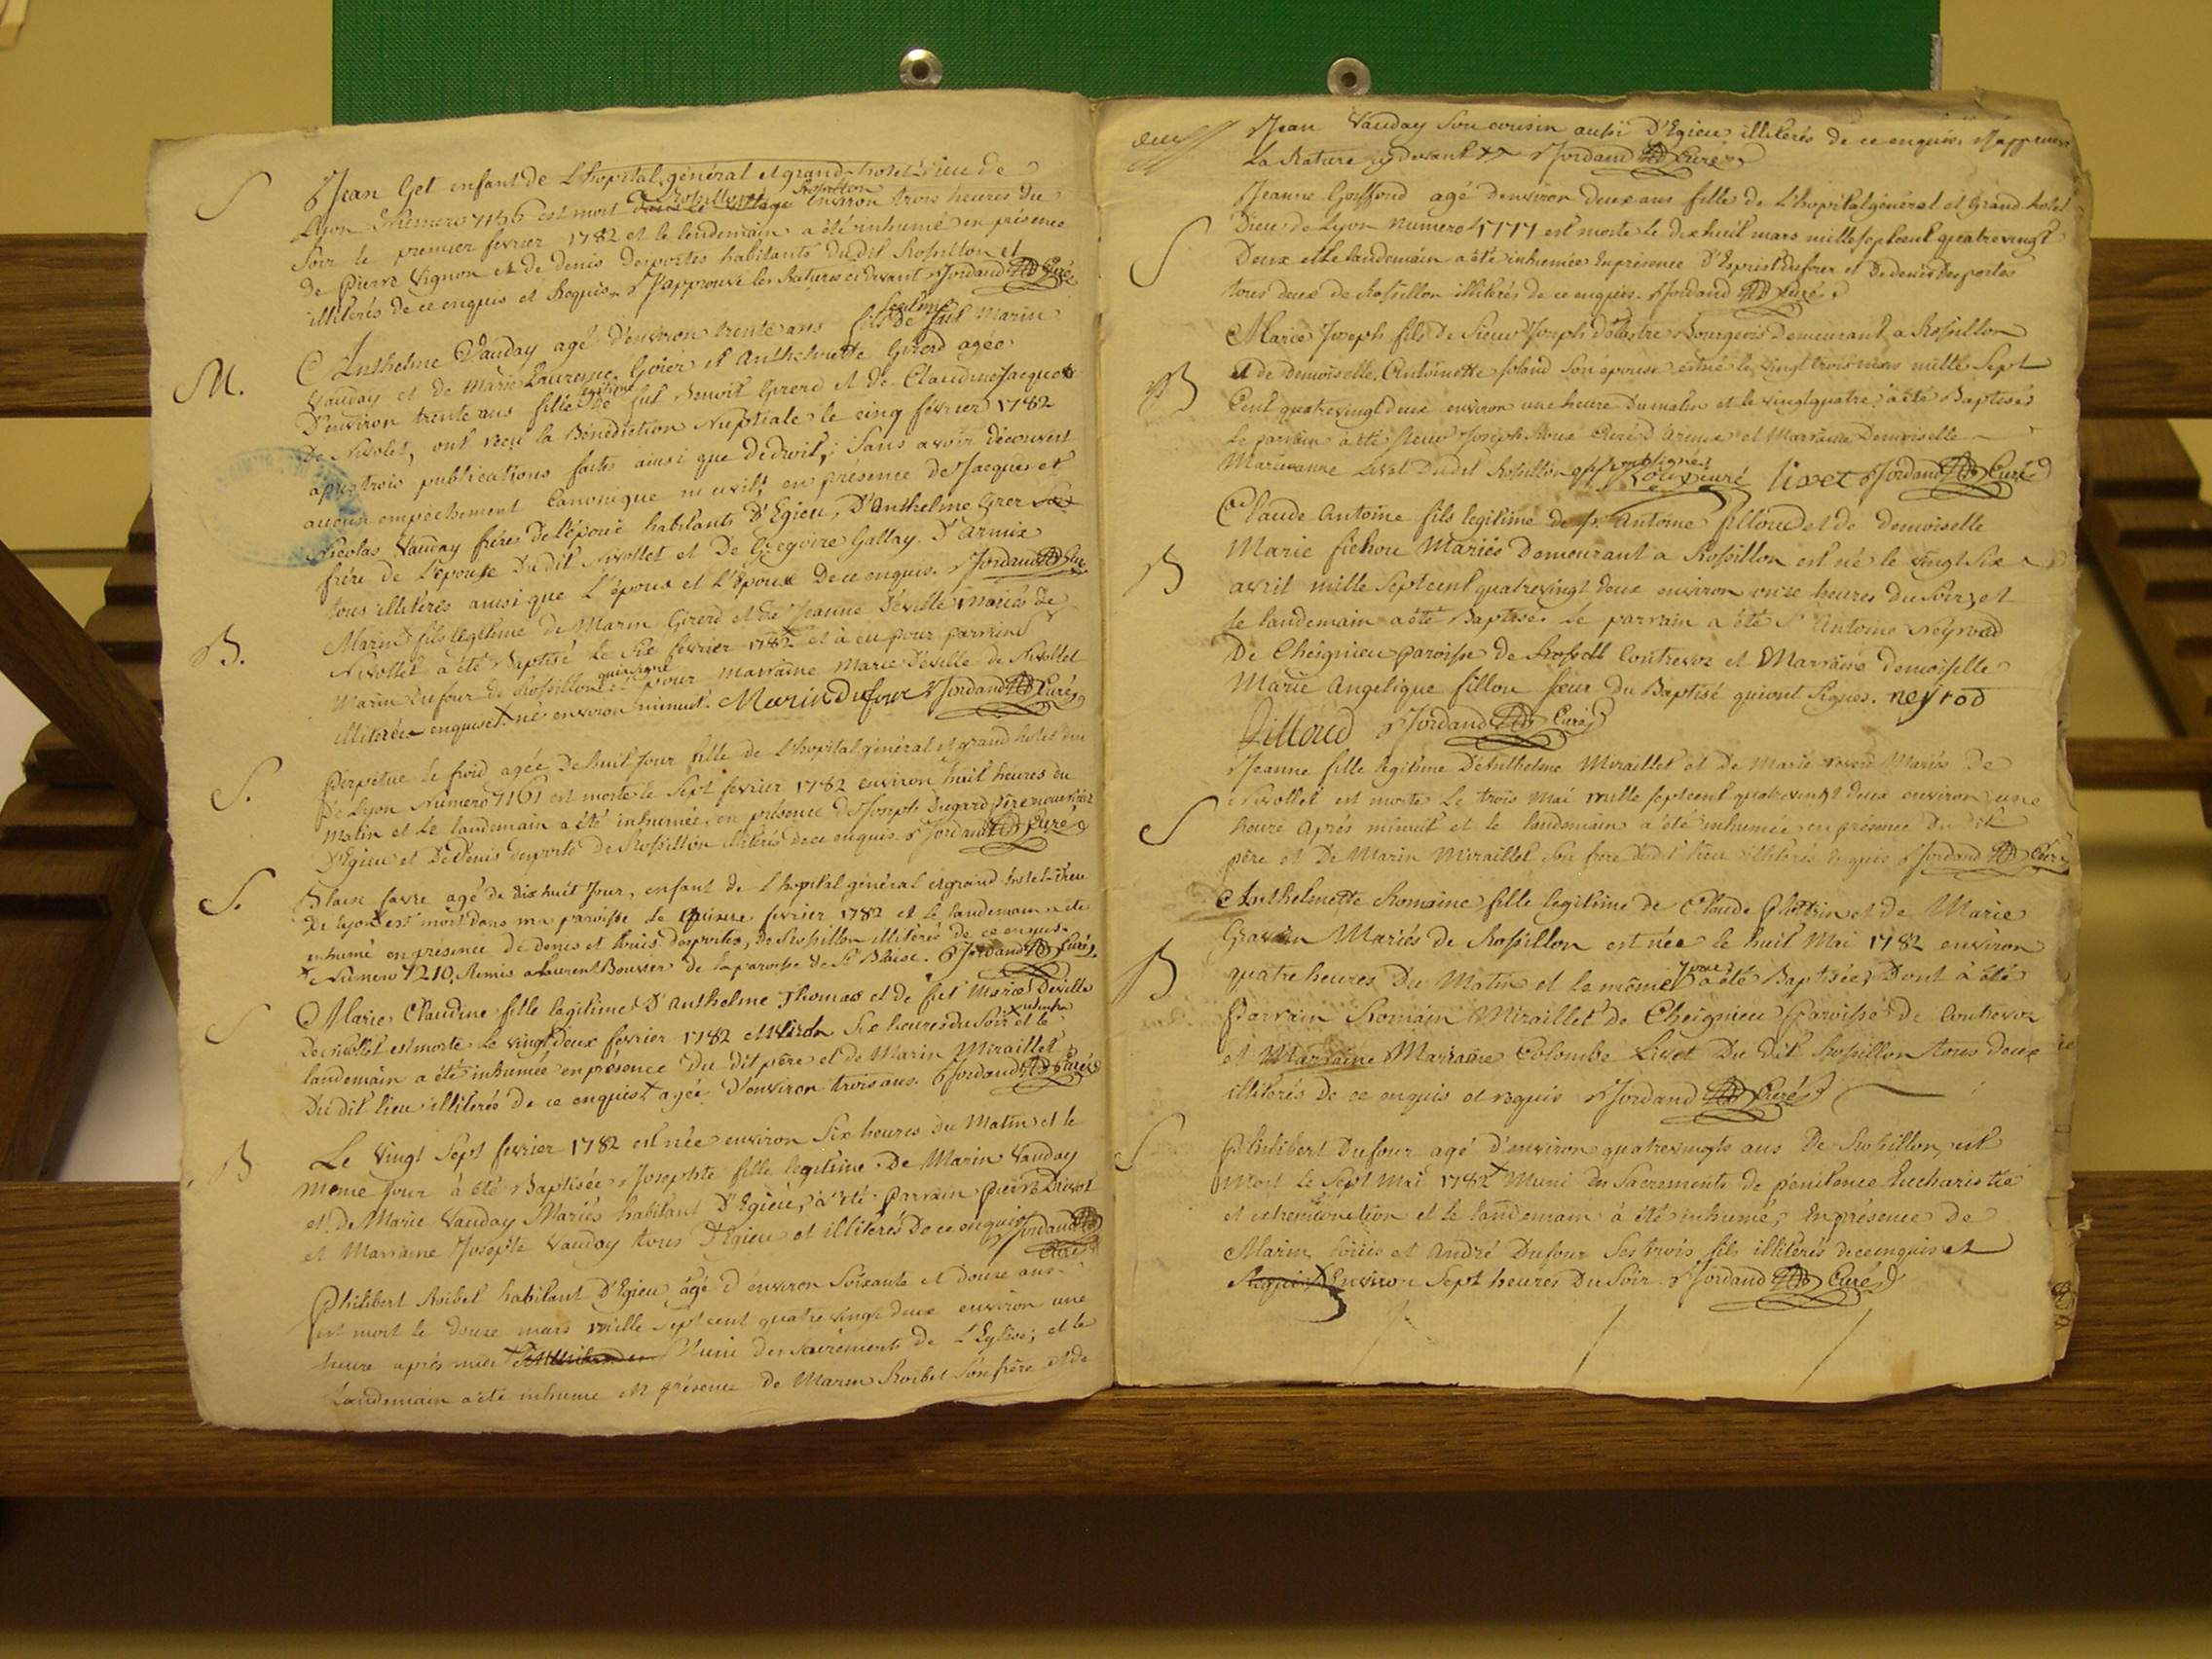 S Jean Get enfant de L'hopital général et grand hotel Dieu de
Lyon Numero 7156 est mort Rossillon environ trois heures du
Soir le premier fevrier 1782 et le lendemain a été inhumé en présence
de Pierre Vignon et de denis Desportes habitants dudit Rossillon et
illiterés de ce enquis et Requis. J'approuve les Ratures ci devant Jordand Curé
M. Anthelme Vauday agé d'environ trente ans fils légitime de fut Marin
Vauday et de Marie Laurence Goier et Anthelmette Girerd agée
D'environ trente ans fille légitime de fut Benoit Girerd et de Claudine Jacquet
De Nivolet, ont reçu la Bénédiction Nuptiale le cinq fevrier 1782
après trois publications faites ainsi que de droit, Sans avoir découvert
aucun empechement Canonique ni civil, en présence de Jacques et
Nicolas Vauday frères de l'époux habitants D'Egieu, D'Anthelme Girer
frére de L'épouse Du dit Nivollet et De Gregoire Gallay D'Armix
tous illiterés ainsi que L'époux et L'épouse De ce enquis. Jordand Curé
B. Marin fils légitime de Marin Girerd et de Jeanne Déville Mariés de
Nivollet a été Baptisé le Six fevrier 1782 et à eu pour parrain
Marin Dufour de Rossillon qui a signé et pour marraine Marie Déville de Nivollet
illiterée enquise né environ minuit. Marin Dufour Jordand Curé
S. Perpétue le froid agée De huit Jour fille de L'hopital général et grand hotel Dieu
De Lyon Numero 7161 est morte le Sept fevrier 1782 environ huit heures du
Matin et le landemain a été inhumée, en présence de Joseph Dugard père nourricier
D'Egieu et De Denis desportes de Rossillon illiterés de ce enquis. Jordand Curé
S. Blaise favre agé de dix huit Jour, enfant de L'hopital général et grand hotel-Dieu
De Lyon est mort dans ma paroisse le Quinze fevrier 1782 et le landemain a été
inhumé en présence de denis et Louis desportes, de Rossillon illiterés de ce enquis.
Numero 7210, Remis a Laurent Bouvier de la paroisse de St Blaise. Jordand Curé
S Marie Claudine fille légitime D'Anthelme Thomas et de fut Marie Déville
De Nivollet est morte le vingt deux fevrier 1782 environ Six heures du Soir et le
landemain a été inhumée en présence Du dit père et de Marin Miraillet
Du dit lieu illiterés de ce enquis agée D'environ trois ans. Jordand Curé
B Le Vingt Sept fevrier 1782 est née environ Six heures du Matin et le
même Jour à été Baptisée Josephte fille légitime De Marin Vauday
et De Marie Vauday Mariés habitant D'Egieu, a été parrain pierre
et Marraine Josephte Vauday tous D'Egieu et illiterés De ce enquis Jordand
Curé
Philibert Roibet habitant D'Egieu agé d'environ Soixante et Douze ans
est mort le Douze mars mille Sept cent quatre vingt deux environ une
heure après midi Muni des Sacrements de L'Eglise, et le
Landemain a été inhumé en présence de Marin Roibet Son frère et de
Jean Vauday Son cousin aussi D'Egieu illiterés de ce enquis. J'approuve
La Rature cy devant Jordand Curé
Jeanne Gouffond agé d'environ deux ans fille de L'hopital général et Grand hotel
S Dieu de Lyon Numero 5777 est morte le dix huit mars mille sept cent quatre vingt
Deux et le landemain a été inhumée En présence D'Esprit dufour et De denis Desportes
tous deux de Rossillon illiterés de ce enquis. Jordand Curé
Marie Joseph fils de Sieur Joseph Bourgeois Demeurant a Rossillon
B et de demoiselle Antoinette foland Son épouse est né le vingt trois mars mille Sept
Cent quatre vingt deux environ une heure Du matin et le vingt quatre a été Baptisé
Le parrain a été Sieur Joseph Roux Curé d'Armix et Marraine Demoiselle
Marie anne Livet Dudit Rossillon Soussignés Roux curé livet Jordand Curé
Claude Antoine fils legitime de Sr Antoine fillioud et de demoiselle
B Marie fichou Mariés Demeurant a Rossillon est né le vingt Six
avril mille Septcent quatrevingt deux environ onze heures du Soir, et
le landemain a été Baptisé. Le parrain a été Sr Antoine Neyroud
De Cheignieu paroisse de Contrevoz et Marraine demoiselle
Marie Angelique fillou soeur du Baptisé qui ont Signés. neyrod
fillioud Jordand Curé
Jeanne fille légitime D'Anthelme Miraillet et De Marie Mariés De
Nivollet est morte le trois Mai mille Septcent quatrevingt deux environ une
S heure Après minuit et le landemain a été inhumée en présence Du dit
père et De Marin Miraillet Son frere dudit lieu illiterés enquis Jordand Curé
Anthelmette Romaine fille legitime de Claude et de Marie
Mariés de Rossillon est née le huit Mai 1782 environ
B quatre heures Du Matin et le même Jour a été Baptisée, Dont à été
Parrain Romain Miraillet De Cheignieu Paroisse De Contrevoz
et Marraine Marraine Colombe Livet Du dit Rossillon tous deux
illiterés de ce enquis et requis Jordand Curé
S Philibert Dufour agé D'environ quatrevingts ans De Rossillon est
Mort le Sept Mai 1782 Muni des Sacrements de pénitence Eucharistie
et extremonction et le landemain à été inhumé, En présence de
Marin, Louis et André Dufour Ses trois fils illiterés de ce enquis et
Requis Environ Sept heures Du Soir Jordand Curé